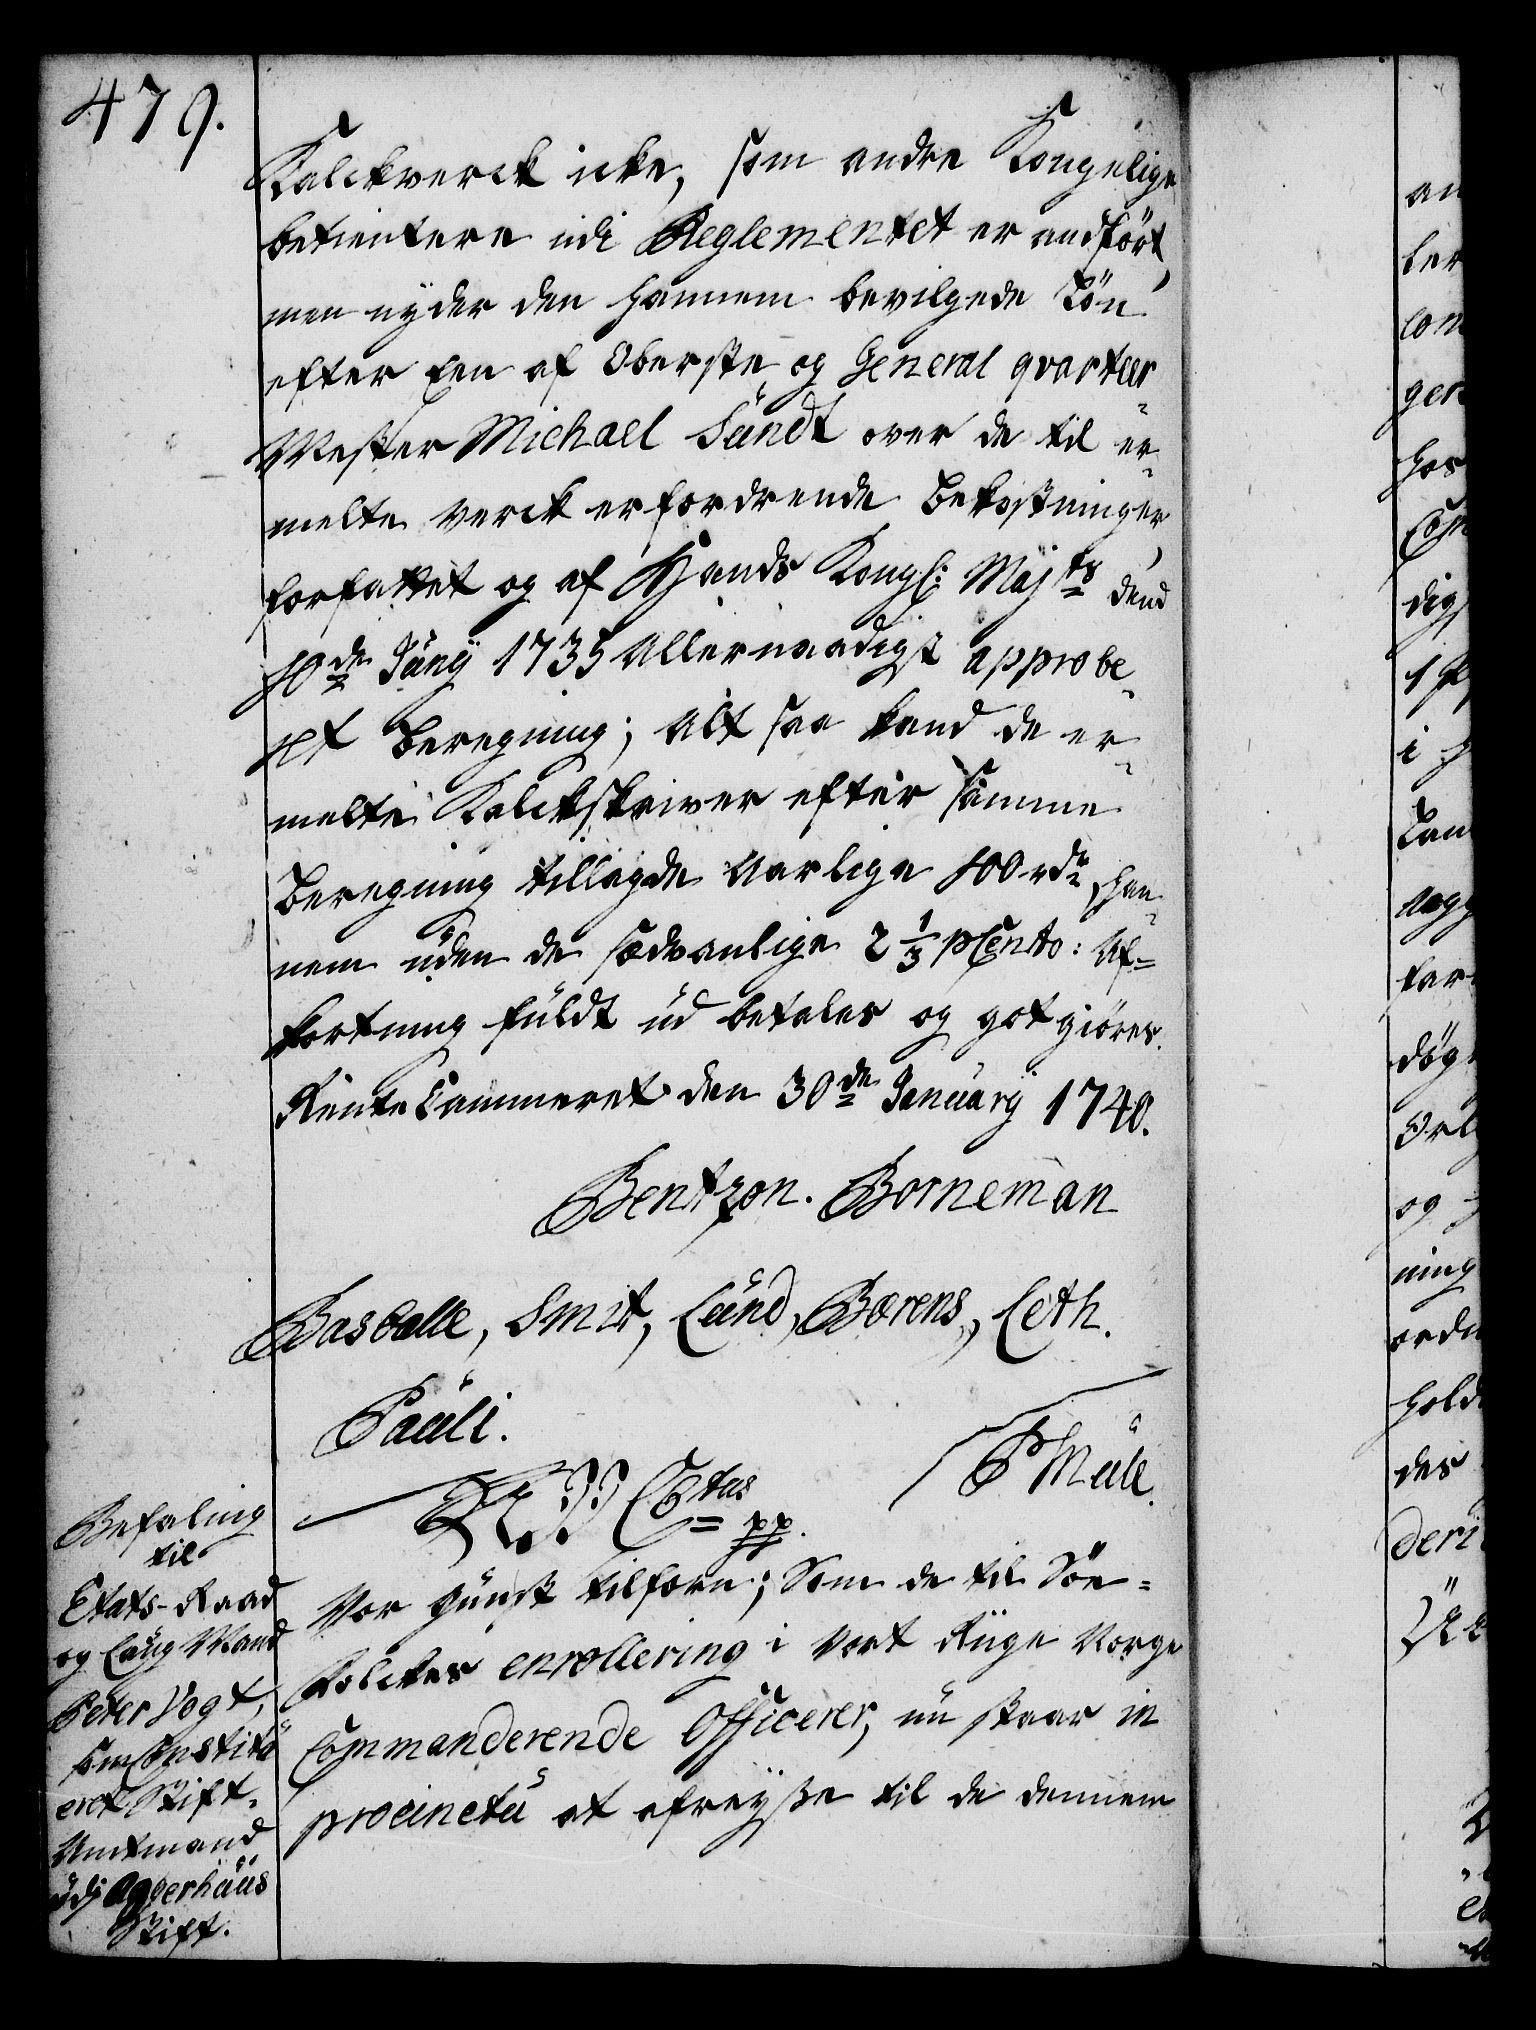 479.
Kalckverck icke, som andre Kongelige
betientere udi Reglementet er andført,
men nyder den hannem bevilgede Løn
efter Een af Oberste og General qvarteer-
Mester Michael Sundt over de til er-
melte verck erfordrende Bekostninger
forfattet og af Hands Kongl: Majts dend
10de Junij 1735 Allernaadigst approbe-
ret Beregning; Alt saa kand de er-
melte Kalckskriver efter samme
Beregning tillagde Aarlige 100 rdr han-
nem uden de sædvanlige 2 1/3 pCento: Af-
kortning fuldt ud betales og godtgiøres.
Rente Cammeret den 30de Januarij 1740.
Bentzon. Borneman
Basballe, Smit, Lund, Bærens, Leth.
Pauli.
P Mule.
Befaling
til
Etats-Raad
og Laug Mand
Peter Vogt,
som Constitu
eret Stift-
Amtmand
udj Aggerhuus
Stift.
C6tus pp.
Vor gunst tilforn; Som de til Søe-
Folckes enrollering i Vort Rige Norge
Commanderende Officerer, nu staar in
procinctu at afreyse til de dennem